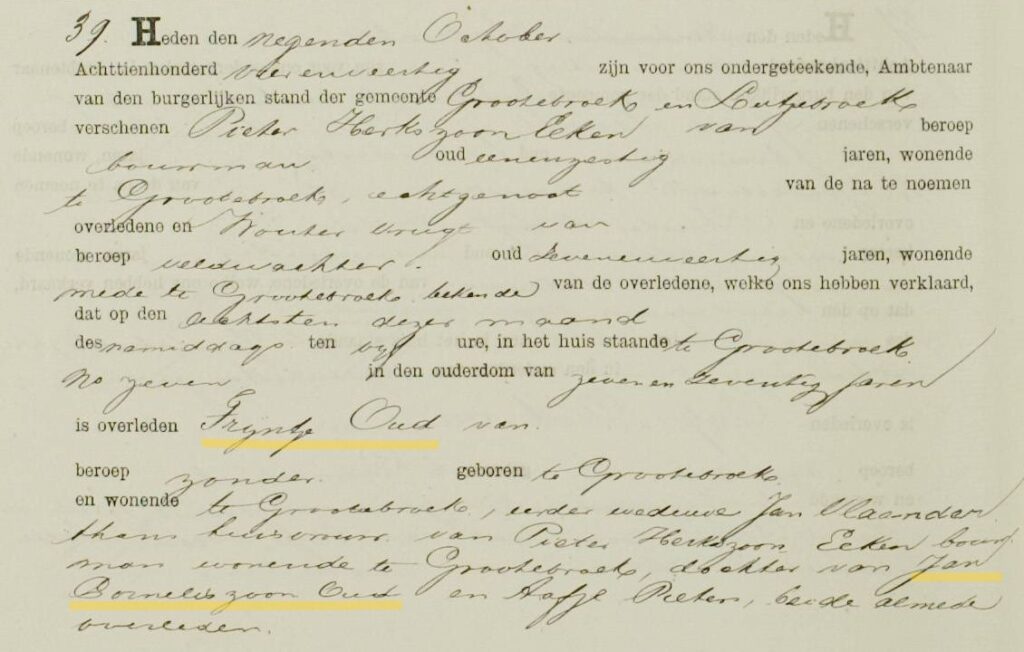 39. Heden den negenden October
Achttienhonderd vierenveertig zijn voor ons ondergeteekende, Ambtenaar
van den burgerlijken stand der gemeente Grootebroek en Lutjebroek
verschenen Pieter Herkszoon Ecken van beroep
bouwman oud eenenzestig jaren, wonende
te Grootebroek, echtgenoot van de na te noemen
overledene en Wouter van
beroep veldwachter. oud zevenenveertig jaren, wonende
mede te Grootebroek bekende van de overledene, welke ons hebben verklaard,
dat op den achtsten dezer maand
des namiddags ten vyf ure, in het huis staande te Grootebroek
No zeven in den ouderdom van zeven en zeventig jaren
is overleden Tryntje Oud van
beroep zonder. geboren te Grootebroek
en wonende te Grootebroek, eerder weduwe Jan Vlaander
thans huisvrouw van Pieter Herkszoon Ecken bouw
man wonende te Grootebroek, dochter van Jan
Corneliszoon Oud en Aafje Pieters, beide almede
overleden.